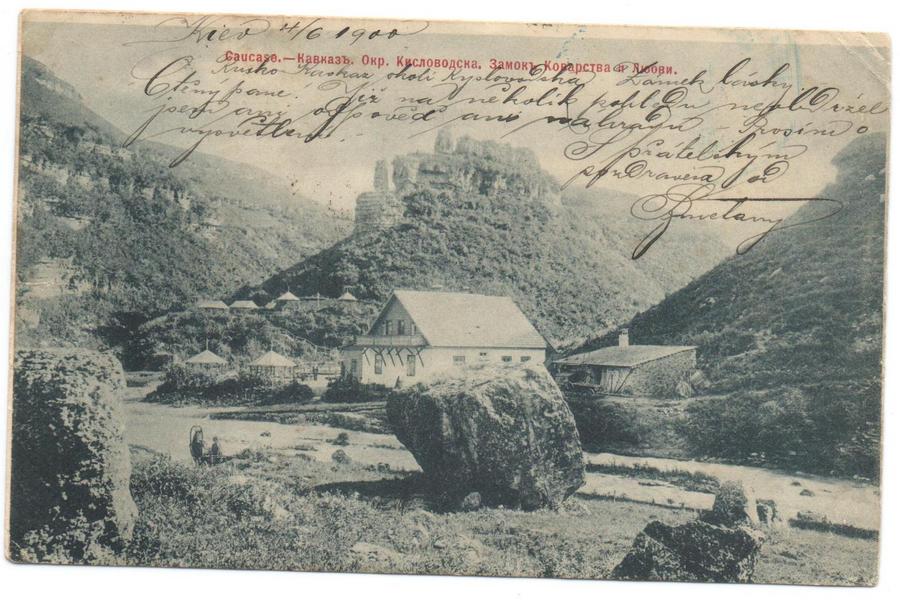 Kiev 4/6 1900
Caucase.—Кавказъ. Окр. Кисловодска, Замокъ Коварства и Любви.
Rusko Kavkaz okolí Kyslovodska, Zámek lásky
Ctěný pane! Již na několik pohledů neobdržel
jsem ani odpověď ani náhradu – Prosím o
vysvětlení.
S přátelským
pozdravem od